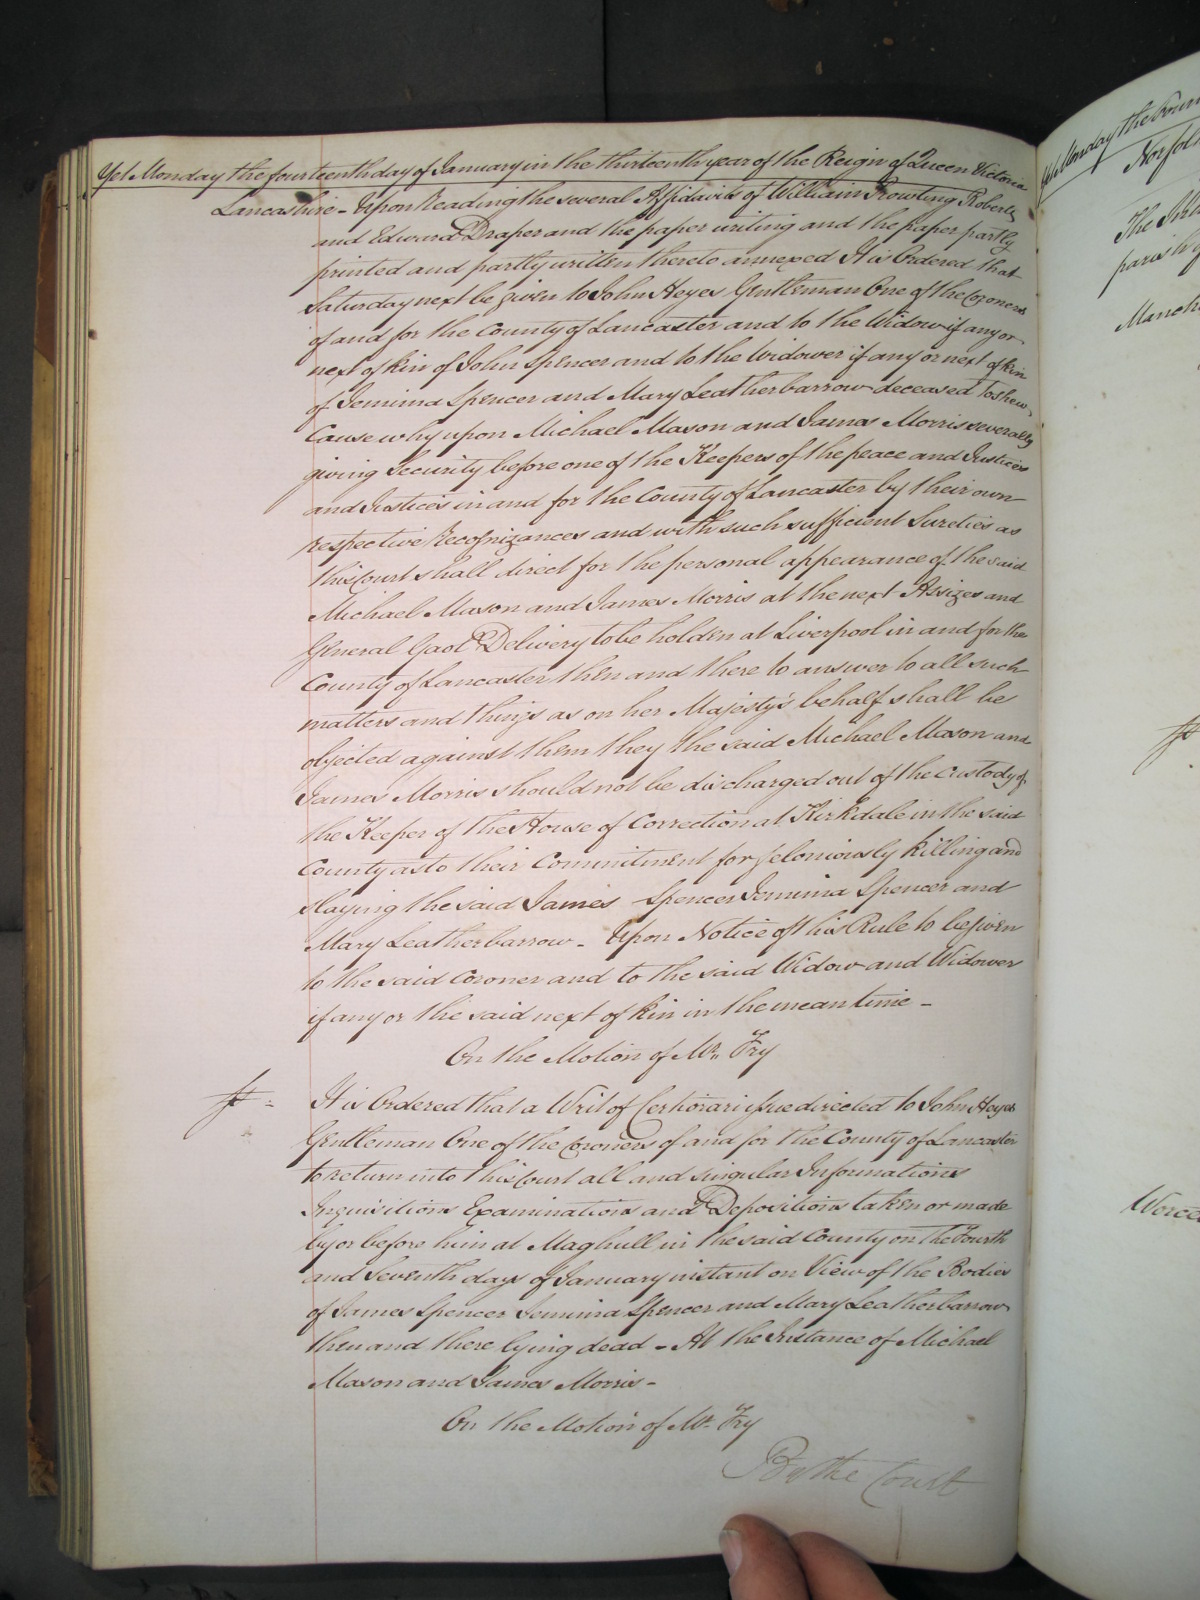 Yet Monday the fourteenth day of January in the thirteenth year of the Reign of Queen Victoria
Lancashire - Upon Reading the several Affidavits of William Rowting Roberts
and Edward Draper and the paper writing and the paper partly
printed and partly written thereto annexed It is Ordered that
Saturday next be given to John Heyes Gentleman One of the Coroners
of and for the County of Lancaster and to the Widow if any or
next of kin of John Spencer and to the Widower if any or next of kin
of Jemima Spencer and Mary Leatherbarrow deceased To shew
Cause why upon Michael Mason and James Morris severally
giving Security before one of the Keepers of the peace and Justices
and Justices in and for the County of Lancaster by their own
respective Recognizances and with such sufficient Sureties as
this Court shall direct for the personal appearance of the said
Michael Mason and James Morris at the next Assizes and
General Gaol Delivery to be holden at Liverpool in and for the
County of Lancaster then and there to answer to all such
matters and things as on her Majesty's behalf shall be
objected against them they the said Michael Mason and
James Morris should not be discharged out of the custody of
the Keeper of the House of Correction at Kirkdale in the said
County as to their Commitment for feloniously killing and
slaying the said James Spencer Jemima Spencer and
Mary Leatherbarrow - Upon Notice of this Rule to be given
to the said Coroner and to the said Widow and Widower
if any or the said next of kin in the mean time -
On the Motion of Mr. Fry
It is Ordered that a Writ of Certiorari issue directed to John Heyes
Gentleman One of the Coroners of and for the County of Lancaster
to return into this Court all and singular Informations
Inquisitions Examinations and Depositions taken or made
by or before him at Maghull in the said County on the Fourth
and Seventh days of January instant on View of the Bodies
of James Spencer Jemima Spencer and Mary Leatherbarrow
then and there lying dead - At the Instance of Michael
Mason and James Morris -
On the Motion of Mr. Fry
By the Court
Monday the
Norfolk
The
parish
Manch
Worce